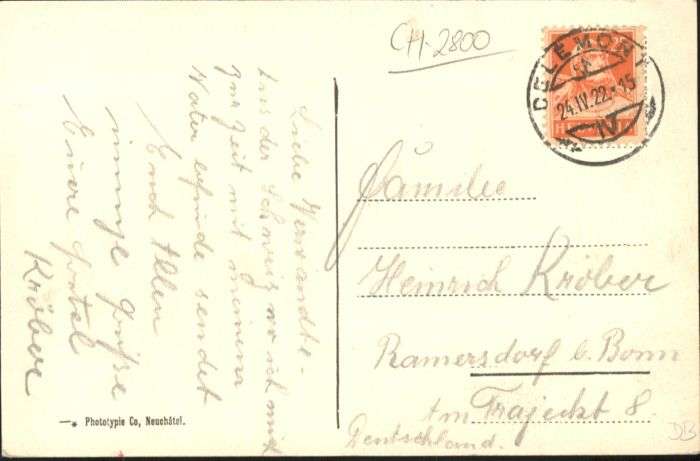 CH-2800
DELEMONT
24.IV.22.-15
HELVETIA
Liebe Verwandte-
Aus der Schweiz wo ich mich
zur Zeit mit meinem
Vater befinde sendet
Euch Allen
innige Grüße
Eure
Kröber
Familie
Heinrich Kröber
Ramersdorf b. Bonn
Am Trajeckt 8.
Deutschland.
Phototypie Co, Neuchâtel.
DB